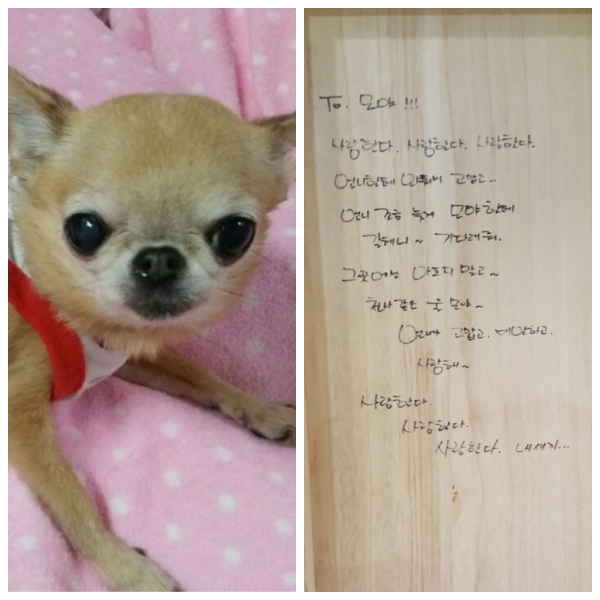 To. 모야!!!
사랑한다. 사랑한다. 사랑한다.
언니한테 와줘서 고맙고..
언니 조금 늦게 모야한테
갈테니~ 기다려줘.
그곳에선 아프지 말고~
천사같은 울 모야~
언니가 고맙고. 미안하고.
사랑해~
사랑한다.
사랑한다.
사랑한다. 내새끼...